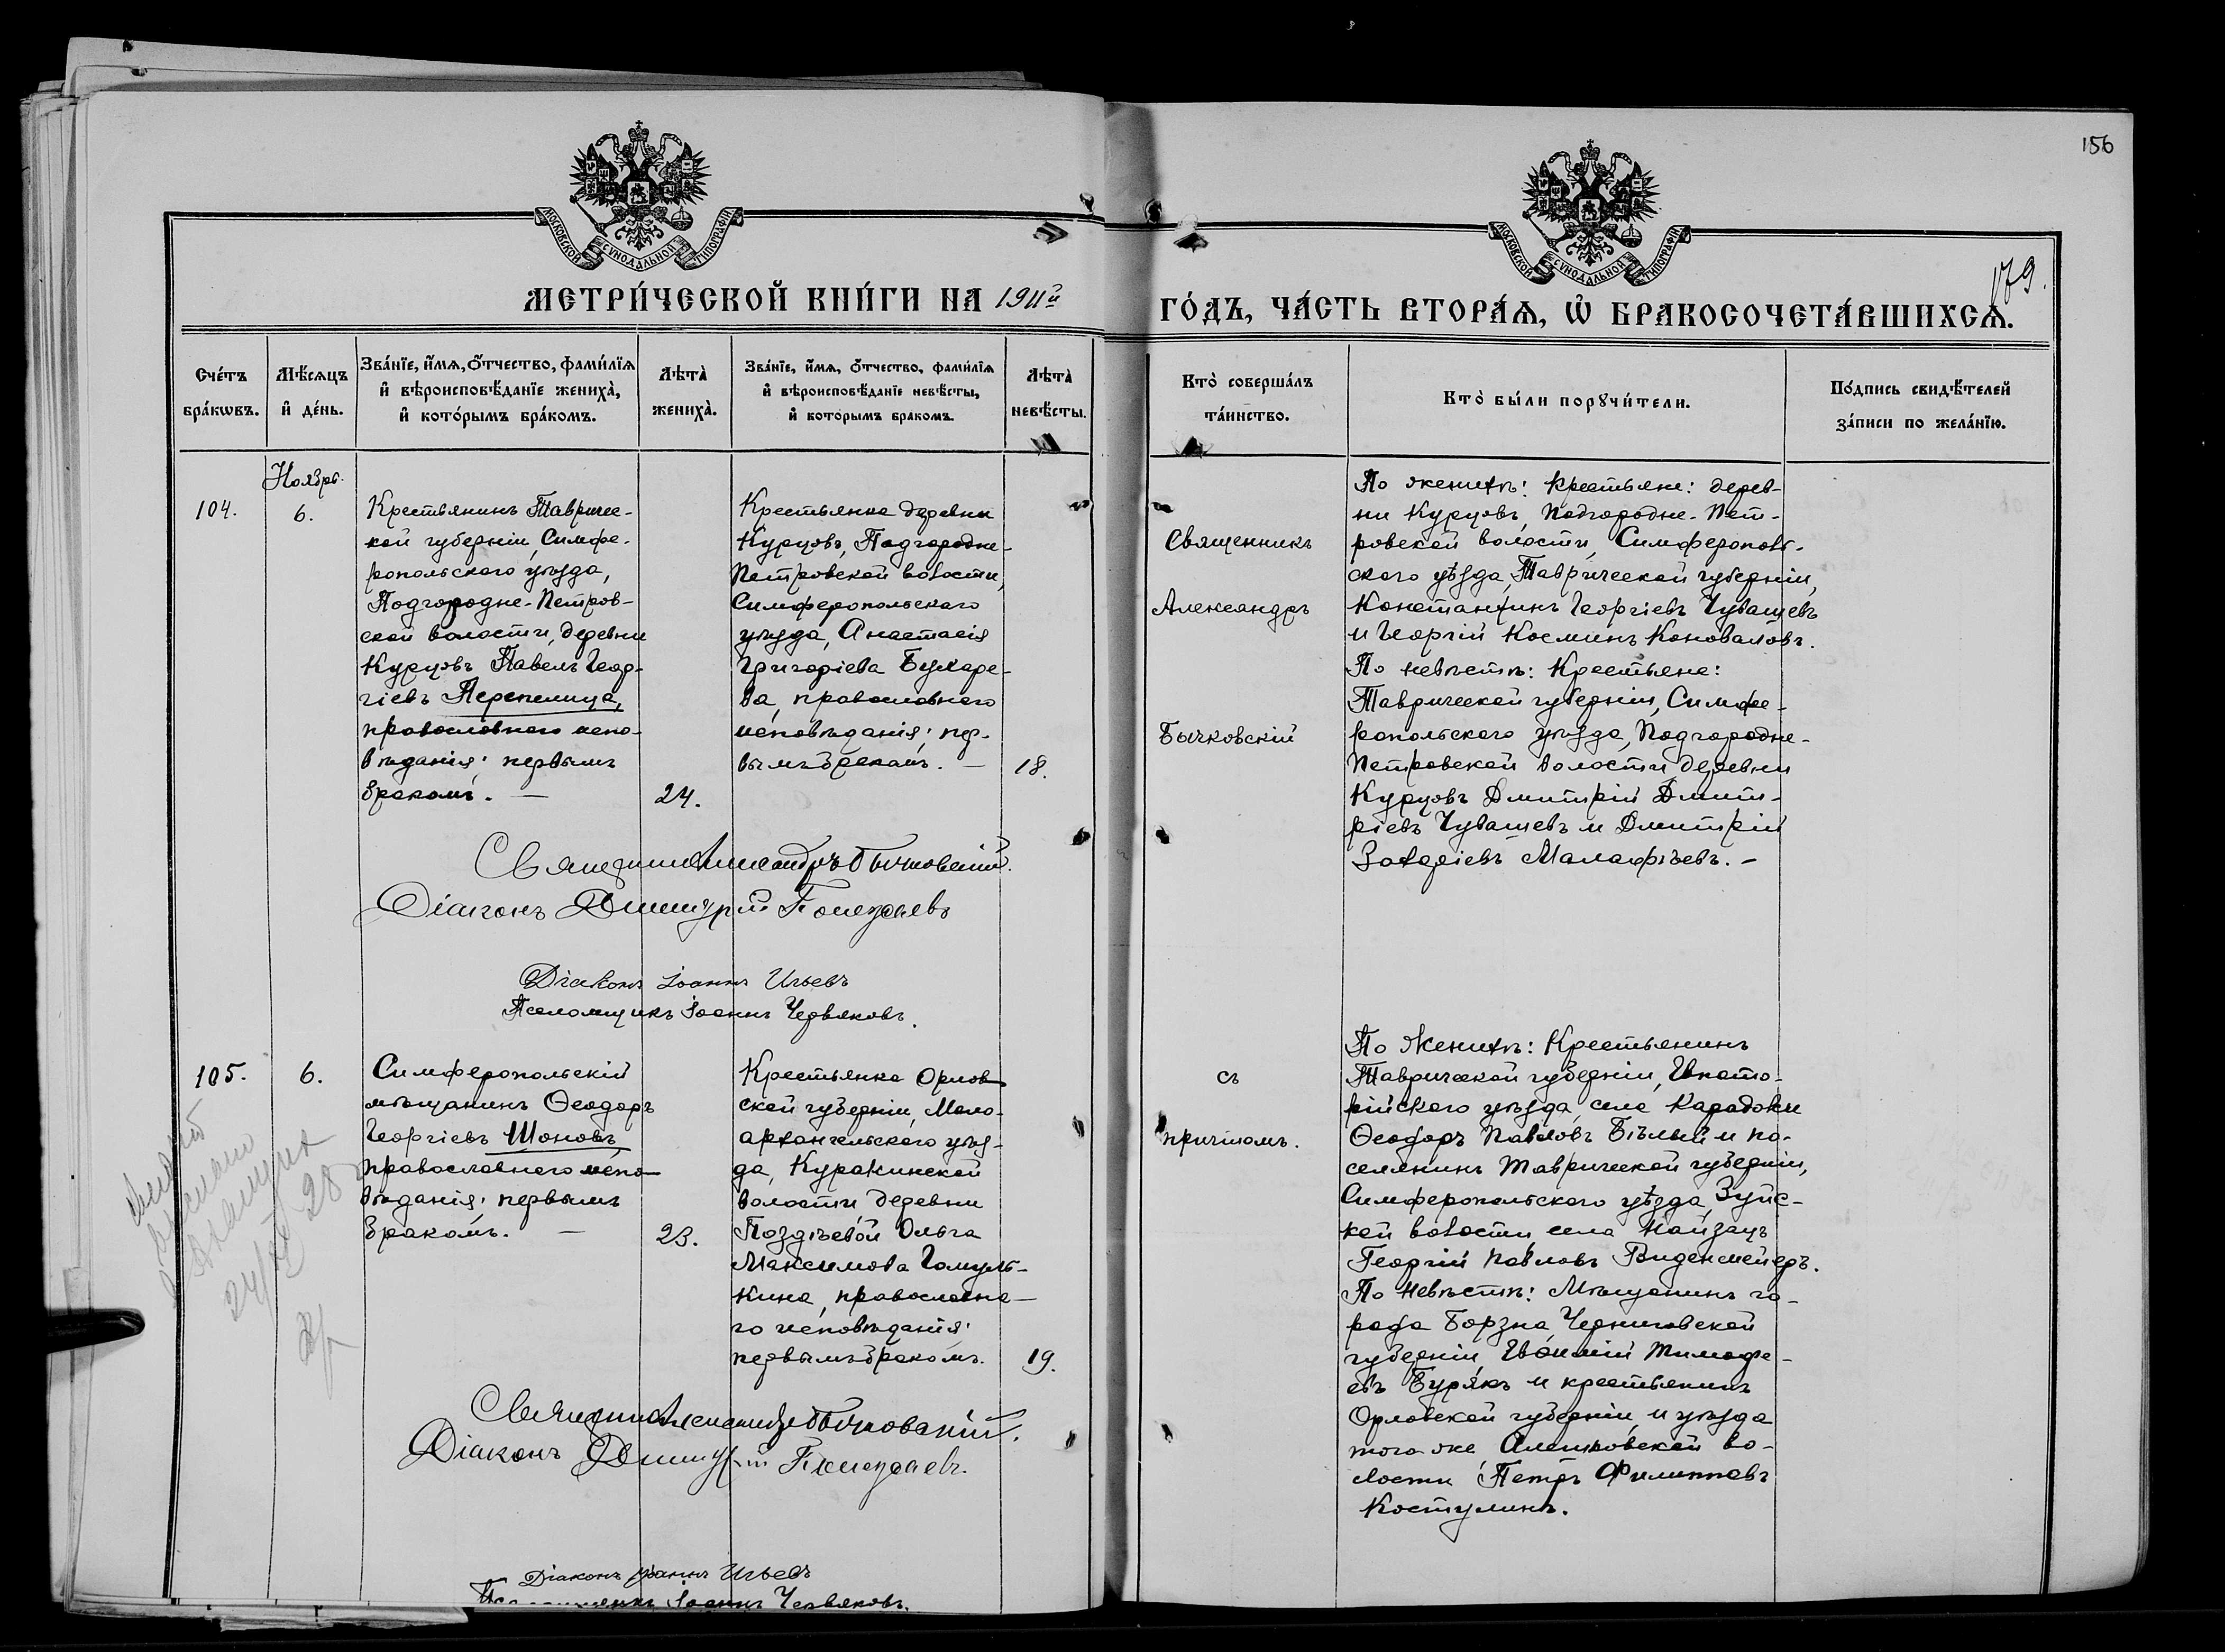 156
179.
МОСКОВСКОЙ СѴНОДАЛЬНОЙ ТИПОГРАФІИ
МОСКОВСКОЙ СѴНОДАЛЬНОЙ ТИПОГРАФІИ
МЕТРИ́ЧЕСКОЙ КНИ́ГИ НА 1911й ГО́ДЪ, ЧА́СТЬ ВТОРА́Ѧ, Ѡ҆ БРАКОСОЧЕТА́ВШИХСѦ.
Сче́тъ
бра́кѡвъ.
Мѣ́сѧцъ
и҆ де́нь.
Зва́нїе, и҆́мѧ, ѻ҆́тчество, фами́лїѧ
и҆ вѣроисповѣ́данїе жениха̀,
и҆ кото́рымъ бра́комъ.
Лѣта̀
жениха̀.
Зва́нїе, и҆́мѧ, ѻ҆́тчество, фами́лїѧ
и҆ вѣроисповѣ́данїе невѣ́сты,
и҆ кото́рымъ бракомъ.
Лѣта̀
невѣ́сты.
Кто̀ соверша́лъ
та́инство.
Кто̀ бы́ли порꙋчи́тели.
По́дпись свидѣ́телей
за́писи по жела́нїю.
104.
Ноябрь.
6.
Крестьянинъ Тавричес-
кой губерніи, Симфе-
ропольскаго уѣзда,
Подгородне-Петров-
ской волости, деревни
Курцовъ Павелъ Геор-
гіевъ Перепелица,
православнаго испо-
вѣданія; первымъ
бракомъ. —
24.
Крестьянка деревни
Курцовъ, Подгородне-
Петровской волости,
Симферопольскаго
уѣзда, Анастасія
Григоріева Бухаре-
ва, православнаго
исповѣданія; пер-
вымъ бракомъ. —
18.
Священникъ
Александръ
Бычковскій
съ
причтомъ.
По женихѣ: Крестьяне: дерев-
ни Курцовъ, Подгородне-Пет-
ровской волости, Симферополь-
скаго уѣзда, Таврической губерніи,
Константинъ Георгіевъ Чувашевъ
и Георгій Косминъ Коноваловъ.
По невѣстѣ: Крестьяне:
Таврической губерніи, Симфе-
ропольскаго уѣзда, Подгородне-
Петровской волости деревни
Курцовъ Дмитрій Дмит-
ріевъ Чувашевъ и Дмитрій
Захаріевъ Малафѣевъ. —
Священникъ Александръ Бычковскій.
Діаконъ Димитрій
Діаконъ Іоаннъ Ильевъ
Псаломщикъ Іоаннъ Червяковъ.
105.
6.
Симферопольскій
мѣщанинъ Ѳеодоръ
Георгіевъ Шоновъ,
православнаго испо-
вѣданія; первымъ
бракомъ. —
23.
Крестьянка Орлов-
ской губерніи, Мало-
архангельскаго уѣз-
да, Куракинской
волости деревни
Поздѣевой Ольга
Максимова Гомуль-
кина, православна-
го исповѣданія;
первымъ бракомъ.
19.
По женихѣ: Крестьянинъ
Таврической губерніи, Евпато-
рійскаго уѣзда, села Караджи
Ѳеодоръ Павловъ Бѣлый и по-
селянинъ Таврической губерніи,
Симферопольскаго уѣзда, Зуйс-
кой волости, села Найзацъ
Георгій Павловъ Виденмейеръ.
По невѣстѣ: Мѣщанинъ го-
рода Борзна, Черниговской
губерніи, Тимофе-
евъ Бурякъ и крестьянинъ
Орловской губерніи и уѣзда
того же во-
лости Петръ Филипповъ
Костулинъ.
Священникъ Александръ Бычковскій.
Діаконъ Димитрій
Діаконъ Іоаннъ Ильевъ
Псаломщикъ Іоаннъ Червяковъ.